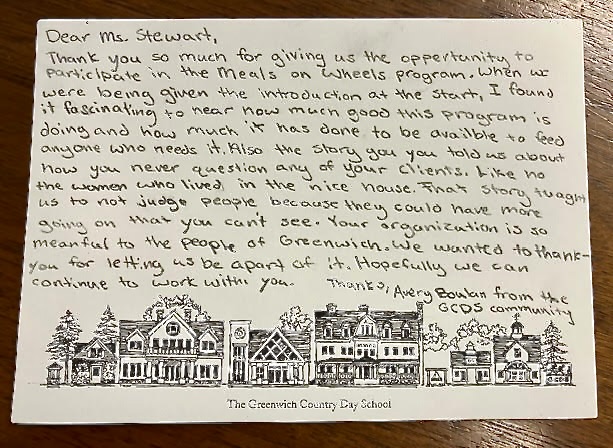 Dear Ms. Stewart,
Thank you so much for giving us the opportunity to
participate in the Meals on Wheels program. When we
were being given the introduction at the start, I found
it fascinating to hear how much good this program is
doing and how much it has done to be availble to feed
anyone who needs it. Also the story you you told us about
how you never question any of your clients. Like no
the women who lived in the nice house. That story tuaght
us to not judge people because they could have more
going on that you can't see. Your organization is so
meanful to the people of Greenwich. We wanted to thank-
you for letting us be apart of it. Hopefully we can
continue to work withi you. Thanks, Avery Boulan from the
GCDS community
The Greenwich Country Day School